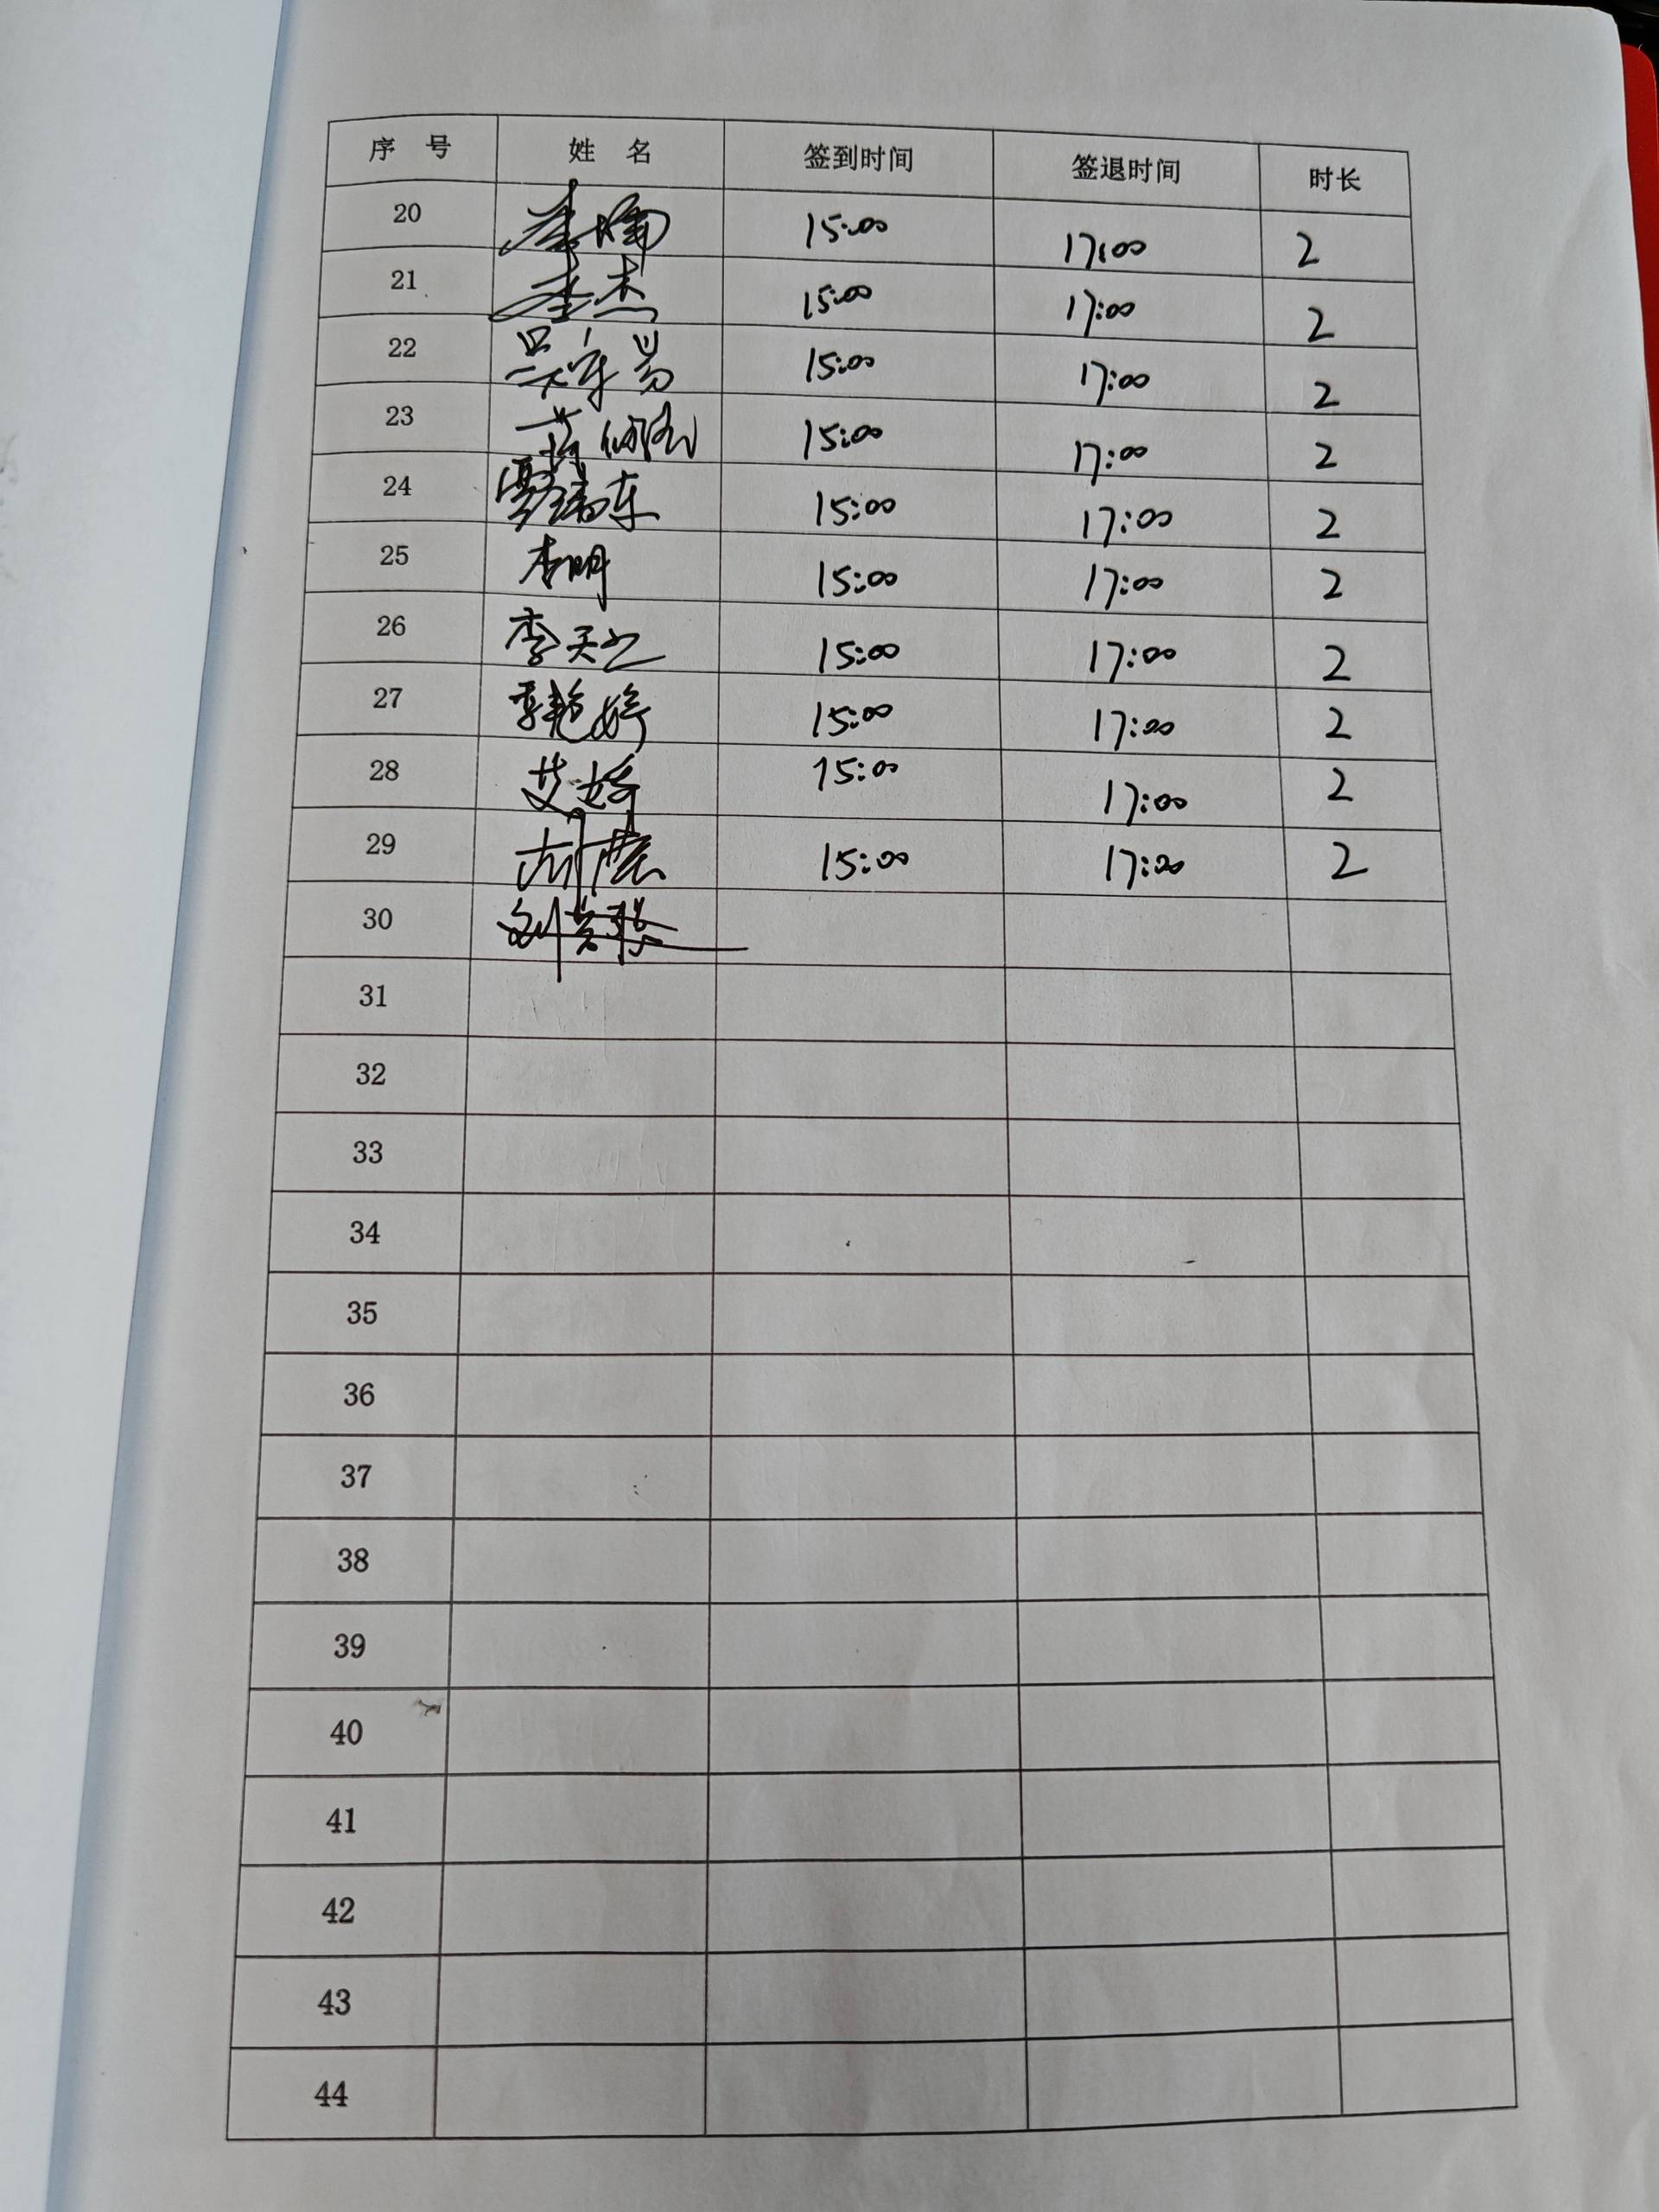 序 号 姓 名 签到时间 签退时间 时长
20 李 15:00 17:00 2
21 李杰 15:00 17:00 2
22 吴 15:00 17:00 2
23 15:00 17:00 2
24 贾 东 15:00 17:00 2
25 李明 15:00 17:00 2
26 李天 15:00 17:00 2
27 李艳婷 15:00 17:00 2
28 艾婷 15:00 17:00 2
29 15:00 17:00 2
30 刘
31
32
33
34
35
36
37
38
39
40
41
42
43
44